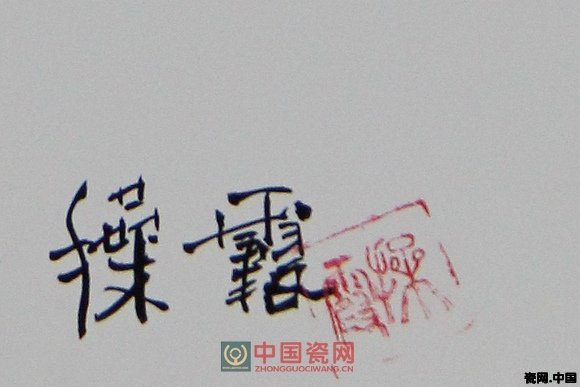 操霞
中国瓷网
ZHONGGUOCIWANG.CN
瓷网.中国